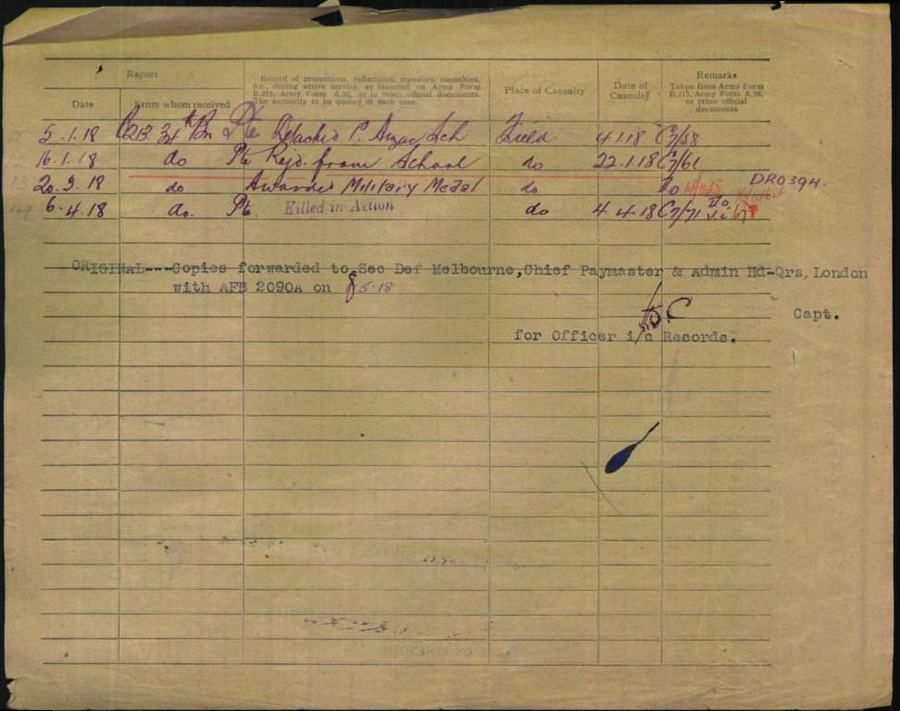 Report
Record of promotions, reductions, transfers, casualties,
&c., during active service, as reported on Army Form
B.213, Army Form A.36, or in other official documents.
The authority to be quoted in each case.
Place of Casualty
Date of
Casualty
Remarks
Taken from Army Form
B.213, Army Form A.36,
or other official
documents
Date
From whom received
5.1.18 34th Bn Pte Detached Anzac Sch Field 4.1.18 C7/58
16.1.18 do Pte Rejd. from School do 22.1.18 C7/61
20.3.18 do Awarded Military Medal do DRO 394.
6.4.18 do. Pte. Killed in Action do 4.4.18 C7/71
ORIGINAL---Copies forwarded to Sec Def Melbourne, Chief Paymaster & Admin Hd-Qrs, London
with AFB 2090A on 8 5.18
Capt.
for Officer i/c Records.